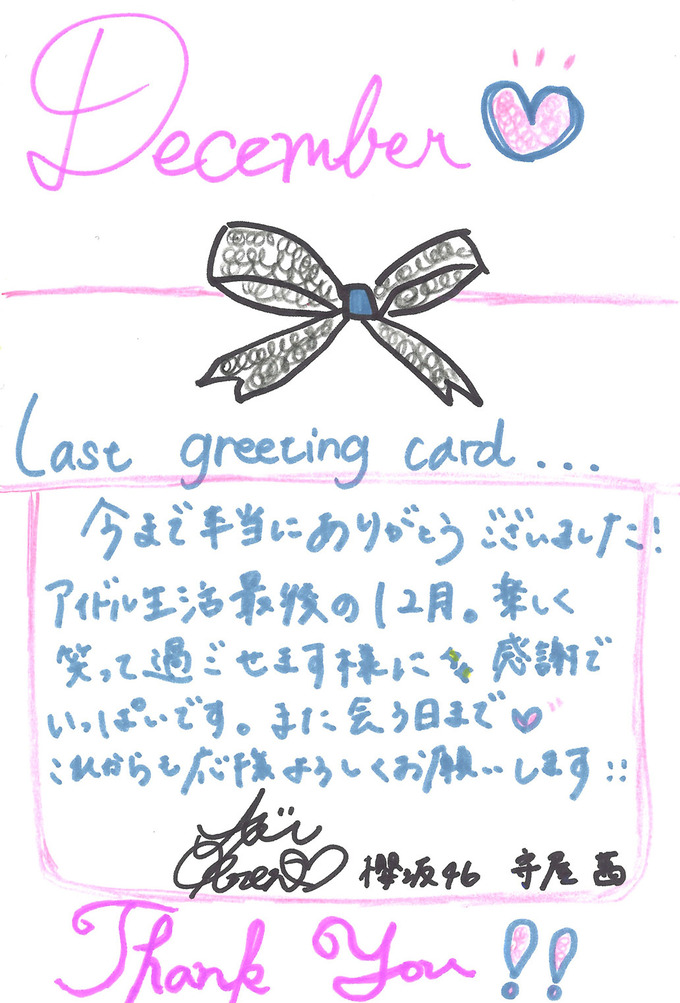 December
Last greeting card...
今まで本当にありがとうございました!
アイドル生活最後の12月。楽しく
笑って過ごせます様に 感謝で
いっぱいです。また会う日まで
これからも応援よろしくお願いします!!
櫻坂46 守屋 茜
Thank You!!